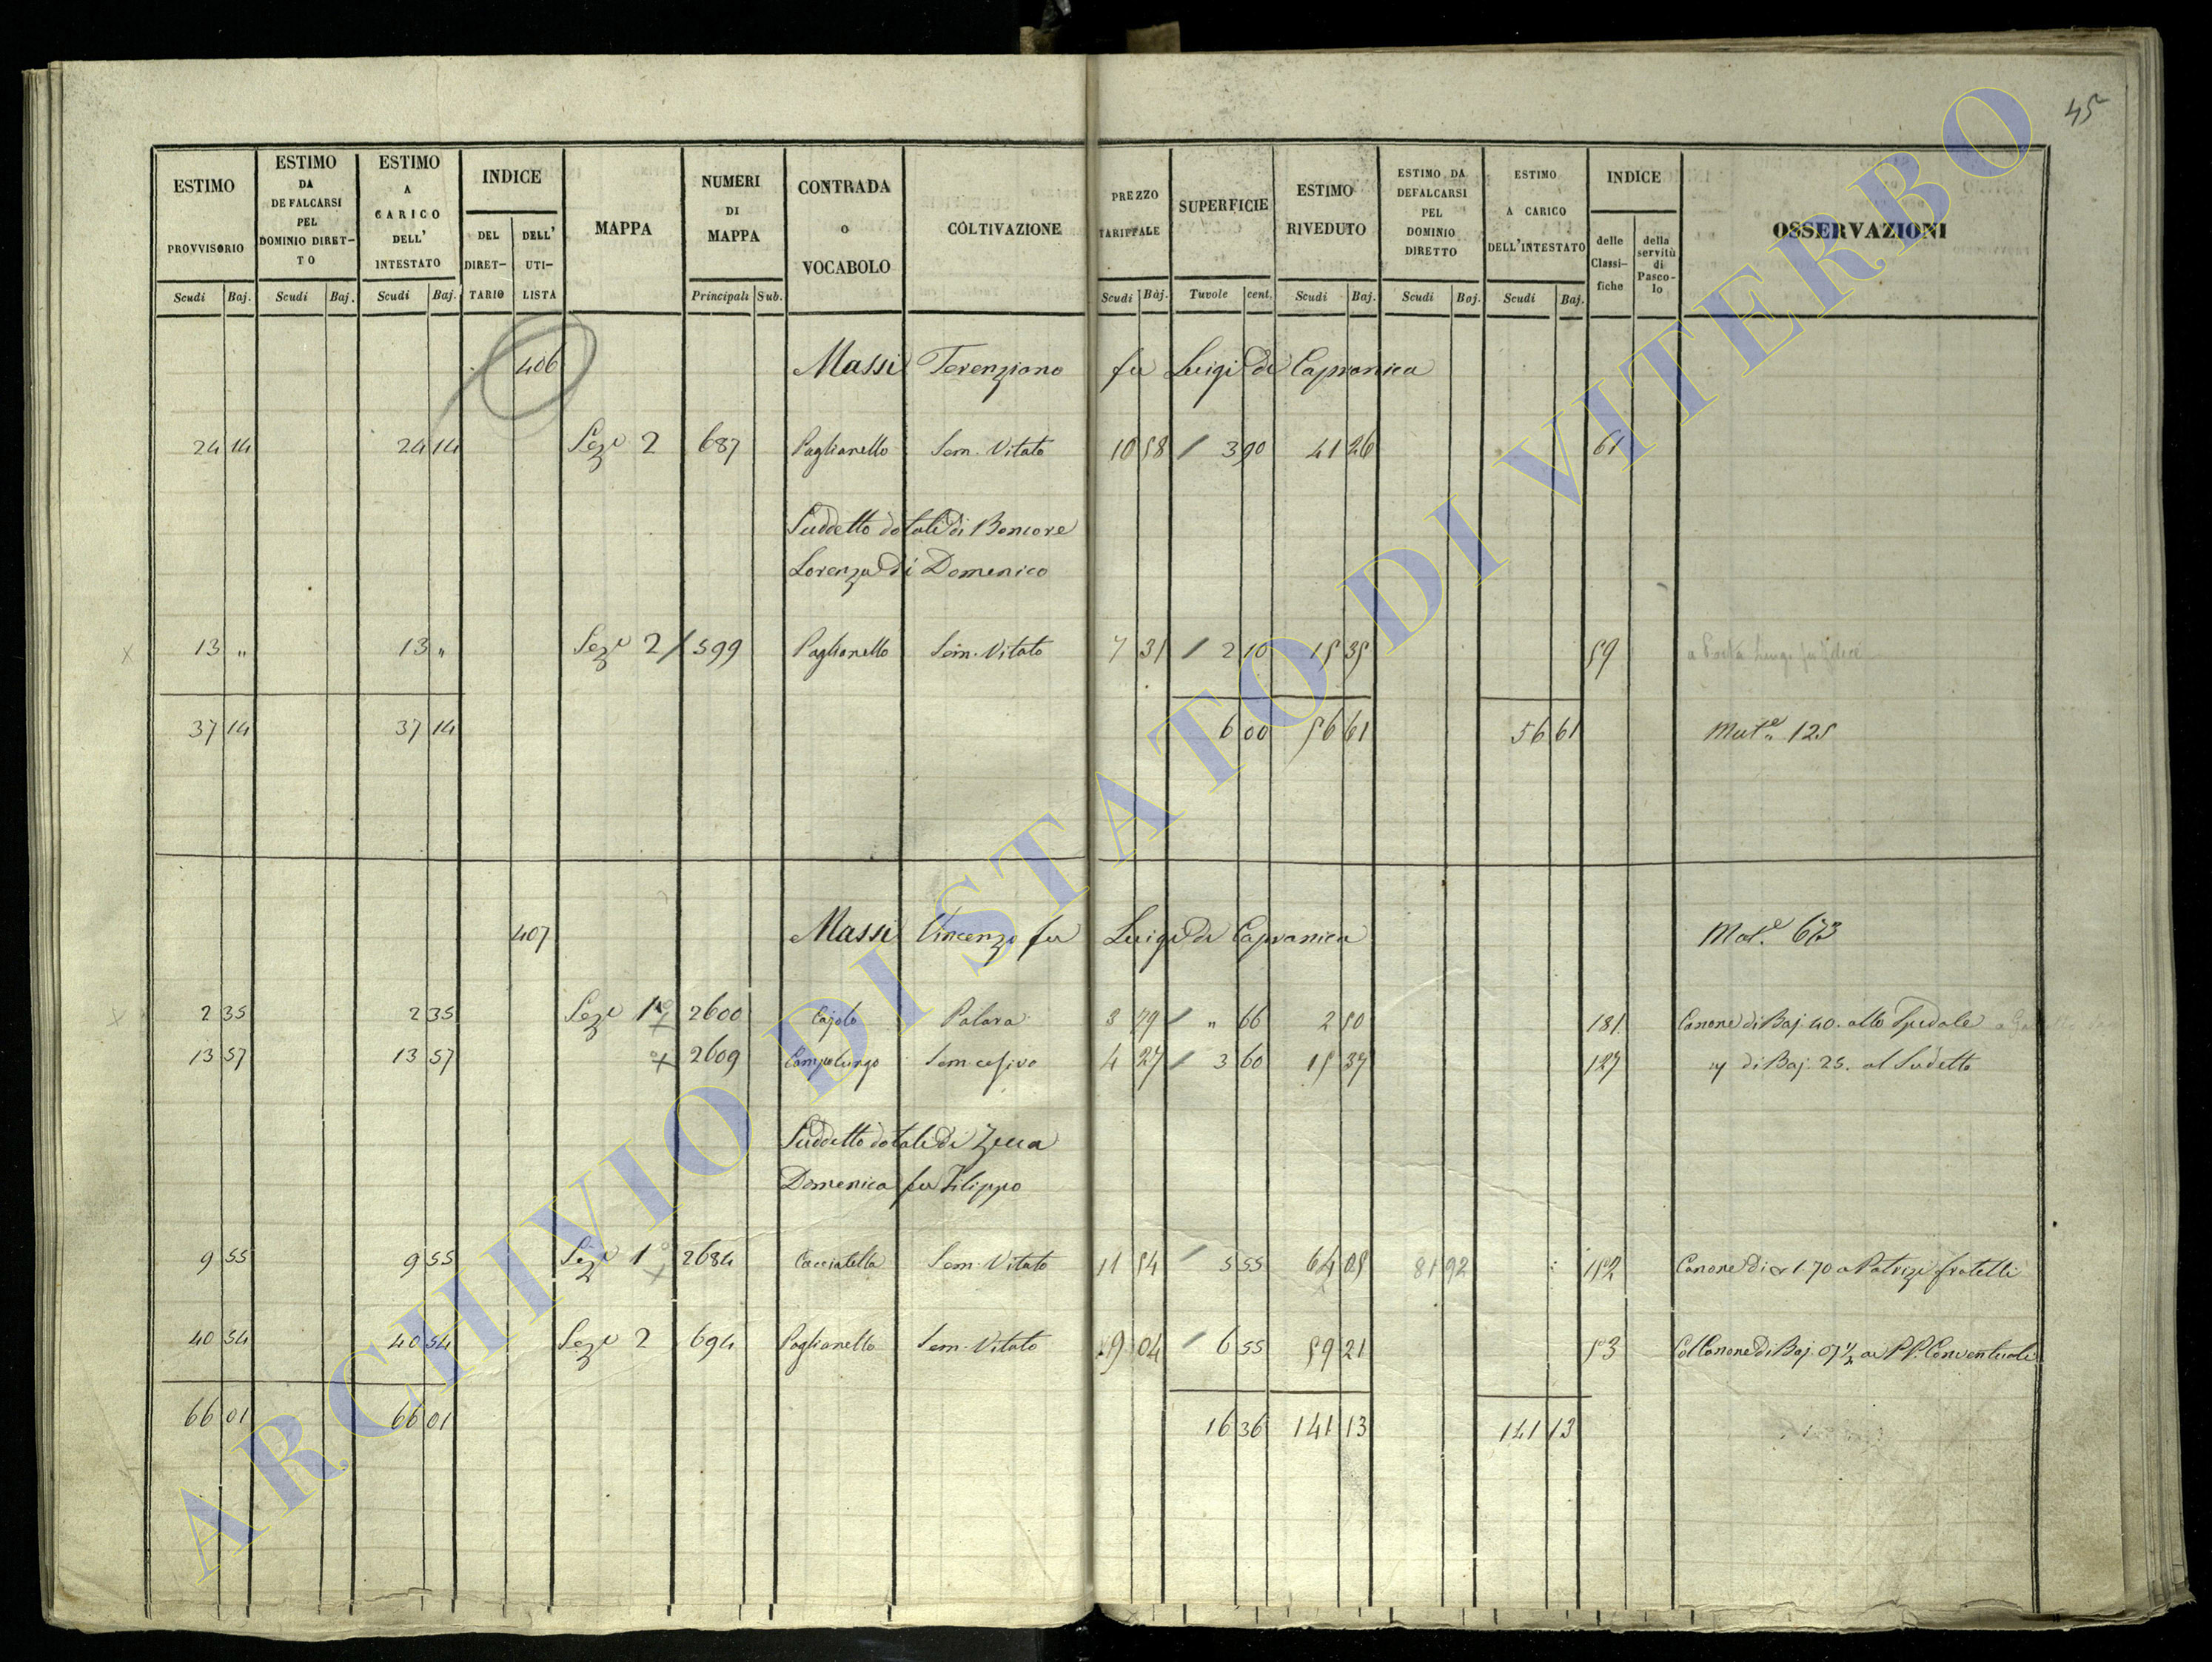 45
ESTIMO PROVVISORIO Scudi Baj.
ESTIMO DA DEFALCARSI PEL DOMINIO DIRETTO Scudi Baj.
ESTIMO A CARICO DELL' INTESTATO Scudi Baj.
INDICE DEL DIRETTARIO DELL' UTILISTA
MAPPA
NUMERI DI MAPPA Principali Sub.
CONTRADA O VOCABOLO
COLTIVAZIONE
PREZZO TARIFFALE Scudi Baj.
SUPERFICIE Tavole cent.
ESTIMO RIVEDUTO Scudi Baj.
ESTIMO DA DEFALCARSI PEL DOMINIO DIRETTO Scudi Baj.
ESTIMO A CARICO DELL'INTESTATO Scudi Baj.
INDICE delle Classifiche della servitù di Pascolo
OSSERVAZIONI
406 Massi Terenziano fu Luigi di Capranica
24 14 24 14 Sez.e 2 687 Paglianello Sem. Vitato 10 58 / 3 90 41 26 61
Suddetto dotali di Boncore
Lorenza di Domenico
x 13 " 13 " Sez.e 2 / 599 Paglianello Sem. Vitato 7 31 / 2 10 15 35 59
37 14 37 14 6 00 56 61 56 61 Mat.e 125
407 Massi Vincenzo fu Luigi di Capranica Mat.e 673
x 2 35 2 35 Sez.e 1 2600 Cajolo Palara 3 79 / " 66 2 50 181 Canone di Baj. 40. allo Spedale
13 57 13 57 2609 Campolungo Sem. cesivo 4 27 / 3 60 15 37 127 di Baj. 25. al Sudetto
Suddetto dotali di Zecca
Domenica fu Filippo
9 55 9 55 Sez.e 1 2684 Cacciatella Sem. Vitato 11 54 / 5 55 64 05 81 92 152 Canone di 1.70 a Patrizi fratelli
40 54 40 54 Sez.e 2 694 Paglianello Sem. Vitato 9 04 / 6 55 59 21 53 Col Canone di Baj. 07 1/2 ai P.P. Conventuali
66 01 66 01 16 36 141 13 141 13
ARCHIVIO DI STATO DI VITERBO